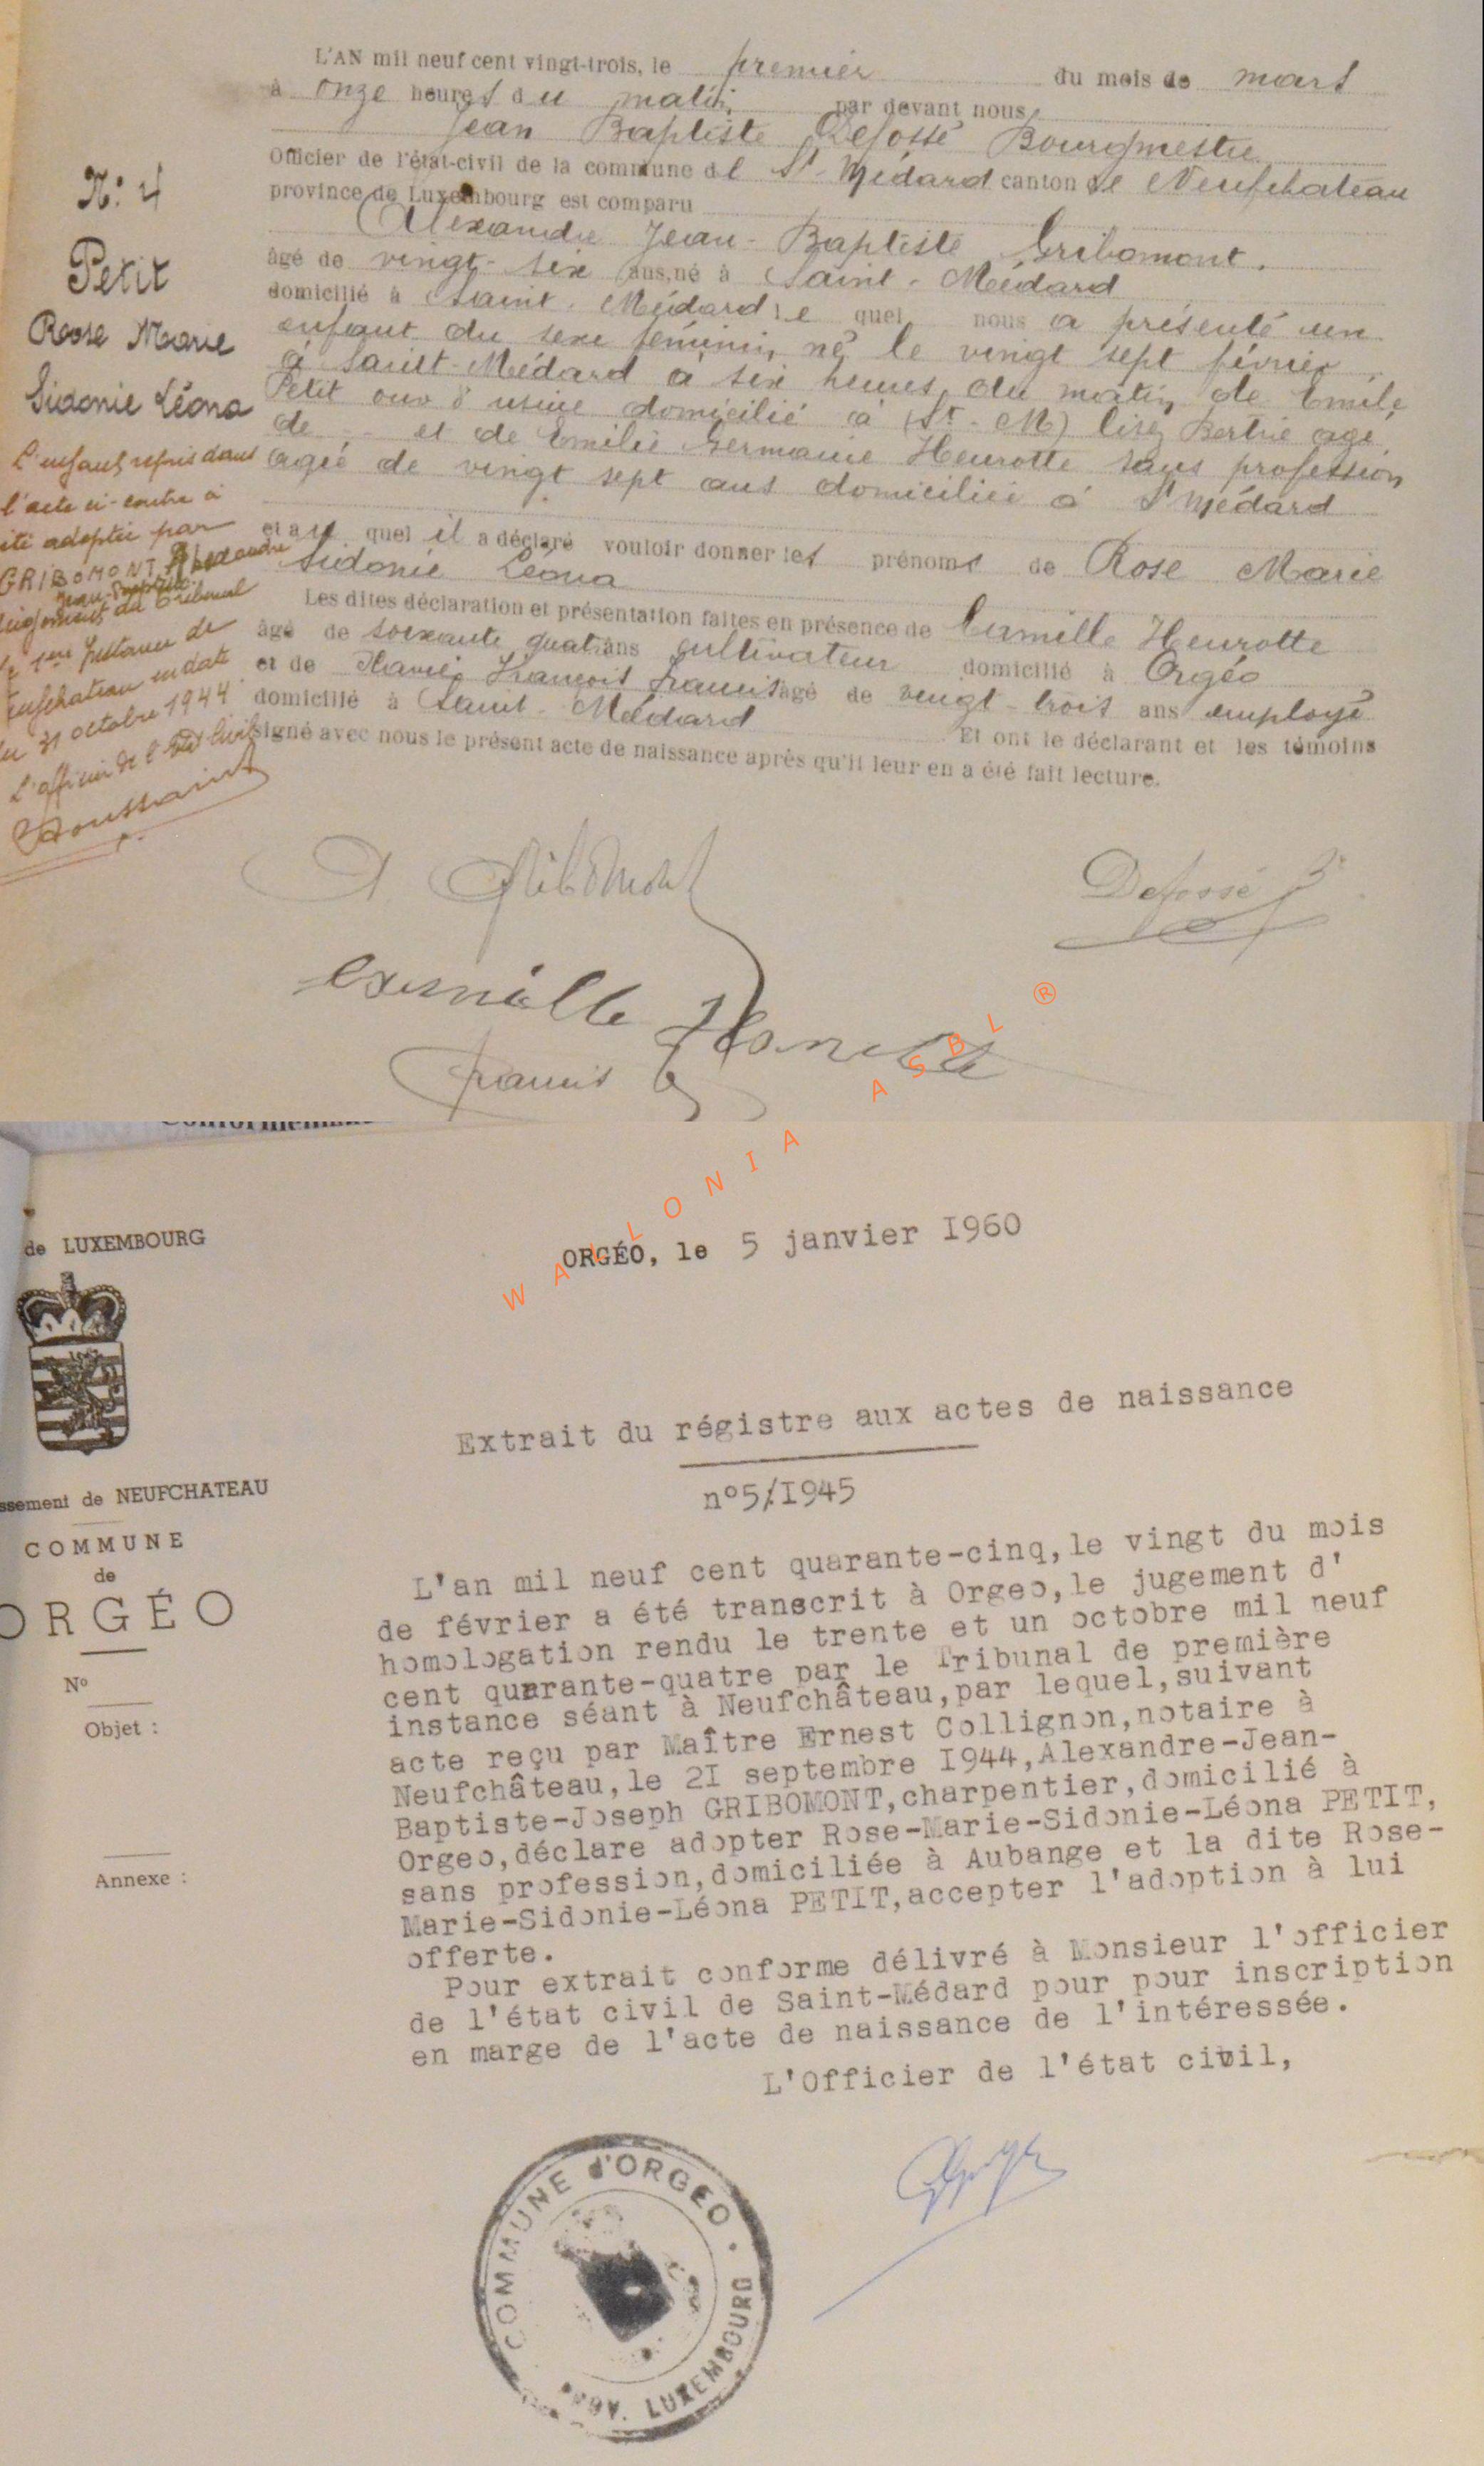 L'AN mil neuf cent vingt-trois, le premier du mois de mars
à onze heures du matin par devant nous
Jean Baptiste Defossé Bourgmestre
Officier de l'état-civil de la commune de St. Médard canton de Neufchateau
province de Luxembourg est comparu
Alexandre Jean-Baptiste Gribomont.
âgé de vingt-six ans, né à Saint-Médard
domicilié à Saint-Médard le quel nous a présenté un
enfant du sexe féminin né le vingt sept février
à Saint-Médard à six heures du matin de Emile
Petit ouv d'usine domicilié à (St-M) lisez Bertrie agé
de et de Emilie Germaine Heurotte sans profession
agée de vingt sept ans domiciliée à St Médard
et au quel il a déclaré vouloir donner les prénoms de Rose Marie
Sidonie Léona
Les dites déclaration et présentation faites en présence de Camille Heurotte
âgé de soixante quatre ans cultivateur domicilié à Orgéo
et de Xavier François Francis âgé de vingt-trois ans employé
domicilié à Saint-Médard Et ont le déclarant et les témoins
signé avec nous le présent acte de naissance après qu'il leur en a été fait lecture.
N: 4
Petit
Rose Marie
Sidonie Léona
L'enfant repris dans
l'acte ci-contre a
été adoptée par
GRIBOMONT Alexandre
Jean-Baptiste
jugement du Tribunal
de 1ère Instance de
Neufchateau en date
du 31 octobre 1944
L'officier de l'Etat Civil
Toussaint
A Gribomont
Defossé
Camille Heurotte
Francis
WALLONIA ASBL ®
de LUXEMBOURG
ssement de NEUFCHATEAU
COMMUNE
de
ORGÉO
No
Objet :
Annexe :
ORGÉO, le 5 janvier I960
Extrait du régistre aux actes de naissance
n°5/I945
L'an mil neuf cent quarante-cinq,le vingt du mois
de février a été transcrit à Orgeo,le jugement d'
homologation rendu le trente et un octobre mil neuf
cent quarante-quatre par le Tribunal de première
instance séant à Neufchâteau,par lequel,suivant
acte reçu par Maître Ernest Collignon,notaire à
Neufchâteau,le 2I septembre I944,Alexandre-Jean-
Baptiste-Joseph GRIBOMONT,charpentier,domicilié à
Orgeo,déclare adopter Rose-Marie-Sidonie-Léona PETIT,
sans profession,domiciliée à Aubange et la dite Rose-
Marie-Sidonie-Léona PETIT,accepter l'adoption à lui
offerte.
Pour extrait conforme délivré à Monsieur l'officier
de l'état civil de Saint-Médard pour pour inscription
en marge de l'acte de naissance de l'intéressée.
L'Officier de l'état civil,
COMMUNE d'ORGEO
PROV. LUXEMBOURG